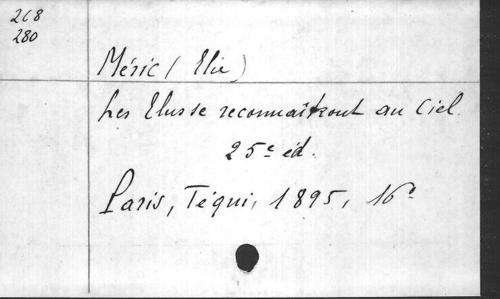 268
280
Méric (Elie)
Les Elus se reconnaîtront au Ciel.
25e éd.
Paris, Téqui, 1895, 16°